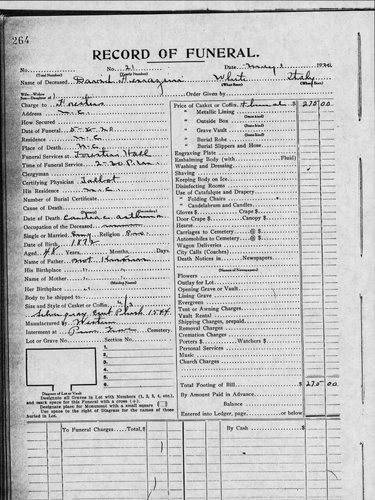 264
RECORD OF FUNERAL.
No. No. 21 Date May 1920
(Total Number) (Yearly Number)
Name of Deceased White Italy
(What Race) (Where Born)
Charge to Forester Price of Casket or Coffin $ 275 00
Address M.C. " Metallic Lining
How Secured " Outside Box
Date of Funeral 5-2-20 " Grave Vault
Residence M.C. " Burial Robe
Place of Death M.C. " Burial Slippers and Hose
Funeral Services at Forester Hall Engraving Plate
Time of Funeral Service 2-30 P.M. Embalming Body (with Fluid)
Clergyman Washing and Dressing
Certifying Physician Talbot Shaving
His Residence M.C. Keeping Body on Ice
Number of Burial Certificate Disinfecting Rooms
Cause of Death Use of Catafalque and Drapery
(Primary) (Secondary) " Folding Chairs
Date of Death " Candelabrum and Candles
Occupation of the Deceased miner Gloves $ Crape $
Single or Married Religion Door Crape $ Canopy $
Date of Birth 1872 Hearse
Aged 48 Years Months Days Carriages to Cemetery @ $
Name of Father Not Known Automobiles to Cemetery @ $
His Birthplace Wagon Deliveries
Name of Mother City Calls (Coaches)
(Maiden Name)
Her Birthplace Death Notices in Newspapers
(Names of Newspapers)
Body to be shipped to Flowers
Size and Style of Casket or Coffin 6/3 Outlay for Lot
Silver gray Plush 1584 Opening Grave or Vault
Manufactured by Western Lining Grave
Interment at Cemetery Evergreen
Lot or Grave No. Section No. Tent or Awning Charges
1. Vault Rental
2. Shipping Charges, prepaid
3. Removal Charges
4. Cremation Charges
5. Porters $ Watchers $
6. Personal Services
Music
Church Charges
Diagram of Lot or Vault
Total Footing of Bill $ 275 00
Designate all Graves in Lot with Numbers (1, 2, 3, 4, etc.),
and mark space for this Funeral with a cross (+). By Amount Paid in Advance
Designate place for Monument with a small square
Use space to the right of Diagram for the names of those Balance
buried in Lot. Entered into Ledger, page or below
To Funeral Charges Total, $ By Cash $